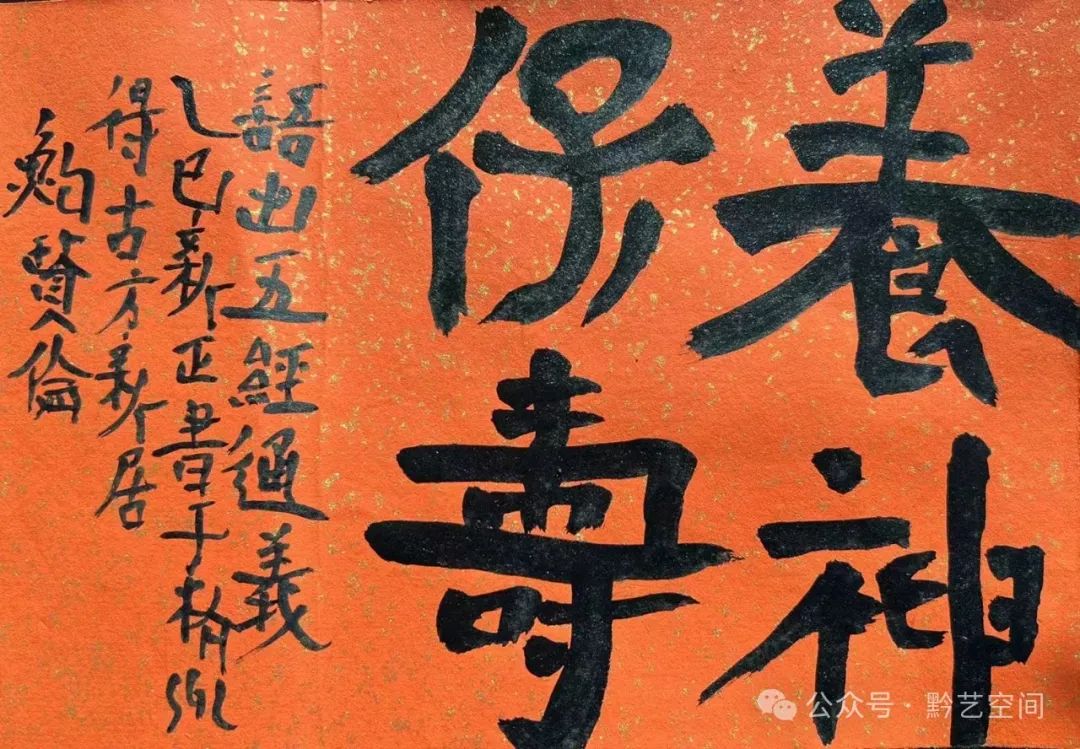 養神
保壽
語出五經通義
乙巳新正書于杭州
得古方新居
鮑賢倫
公众号·黔艺空间